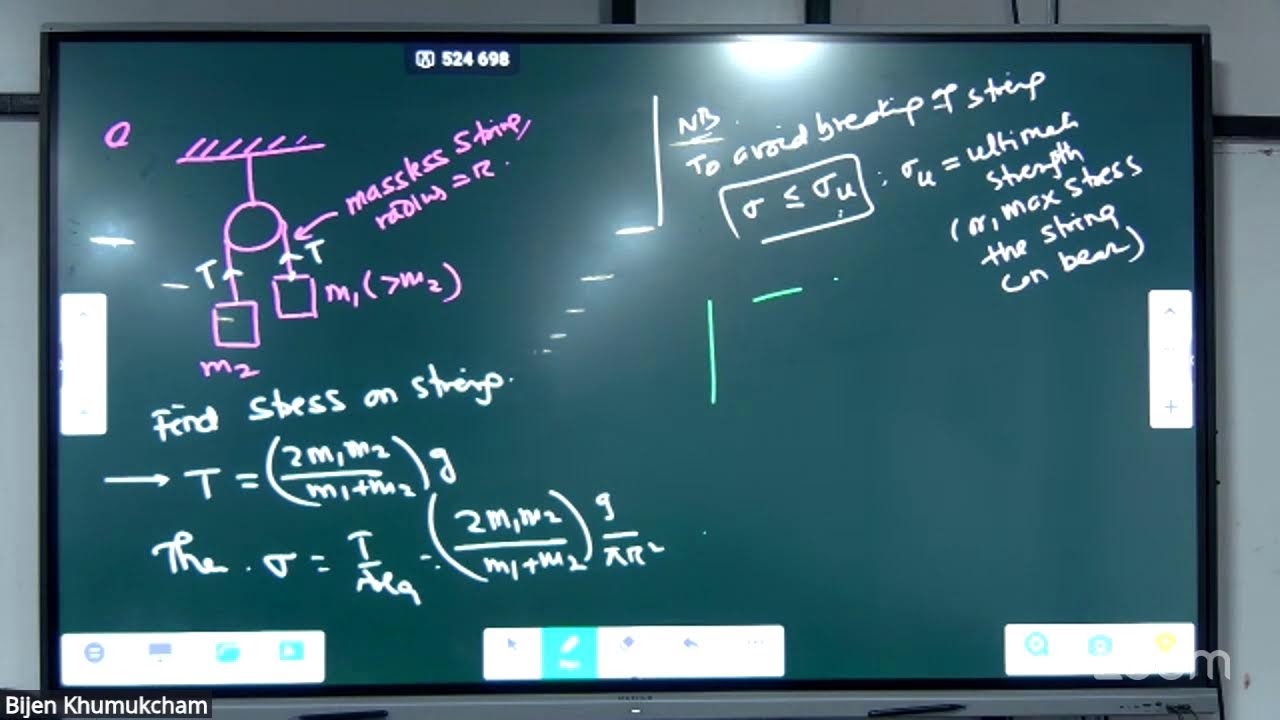 524 698
Q
massless string,
radius = R.
T
T
m₁(>m₂)
m₂
Find stress on string.
→ T = (2m₁m₂ / m₁+m₂) g
Then. σ = T / Area = (2m₁m₂ / m₁+m₂) g / πR²
NB.
To avoid breaking of string
σ ≤ σu : σu = ultimate
strength
(or, max stress
the string
can bear)
zoom
Bijen Khumukcham